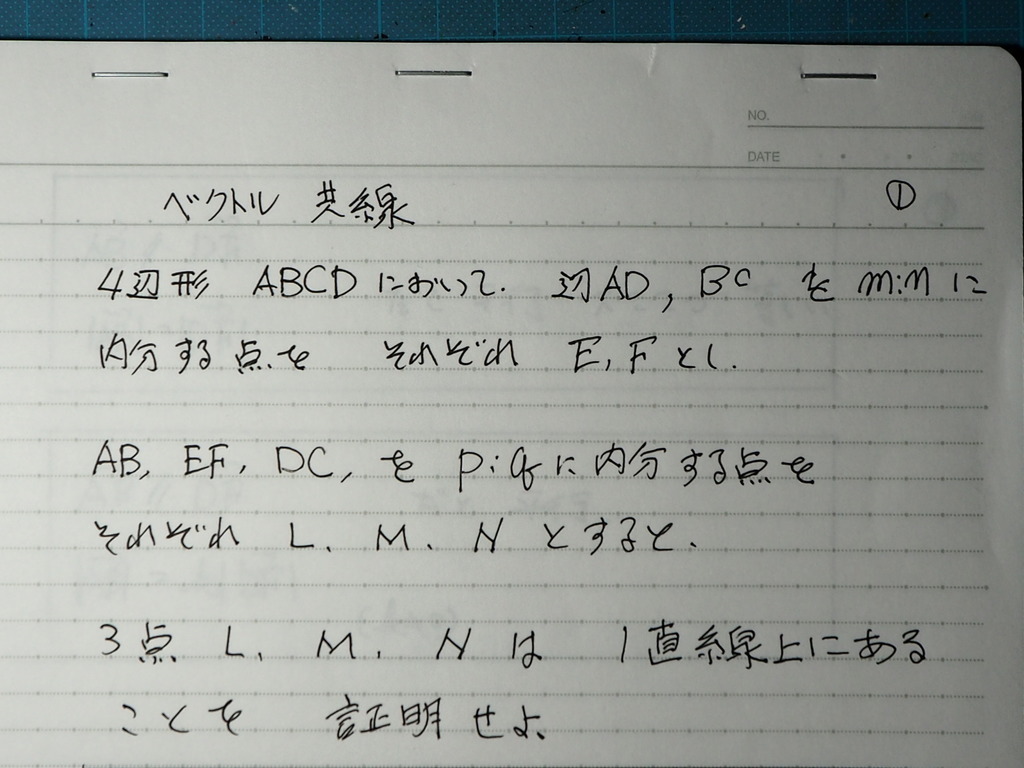 NO.
DATE
ベクトル 共線 ①
4辺形 ABCDにおいて. 辺AD, BC を m:nに
内分する点を それぞれ E, Fとし.
AB, EF, DC, を p:qに内分する点を
それぞれ L、M、Nとすると、
3点 L、M、Nは 1直線上にある
ことを 証明せよ、